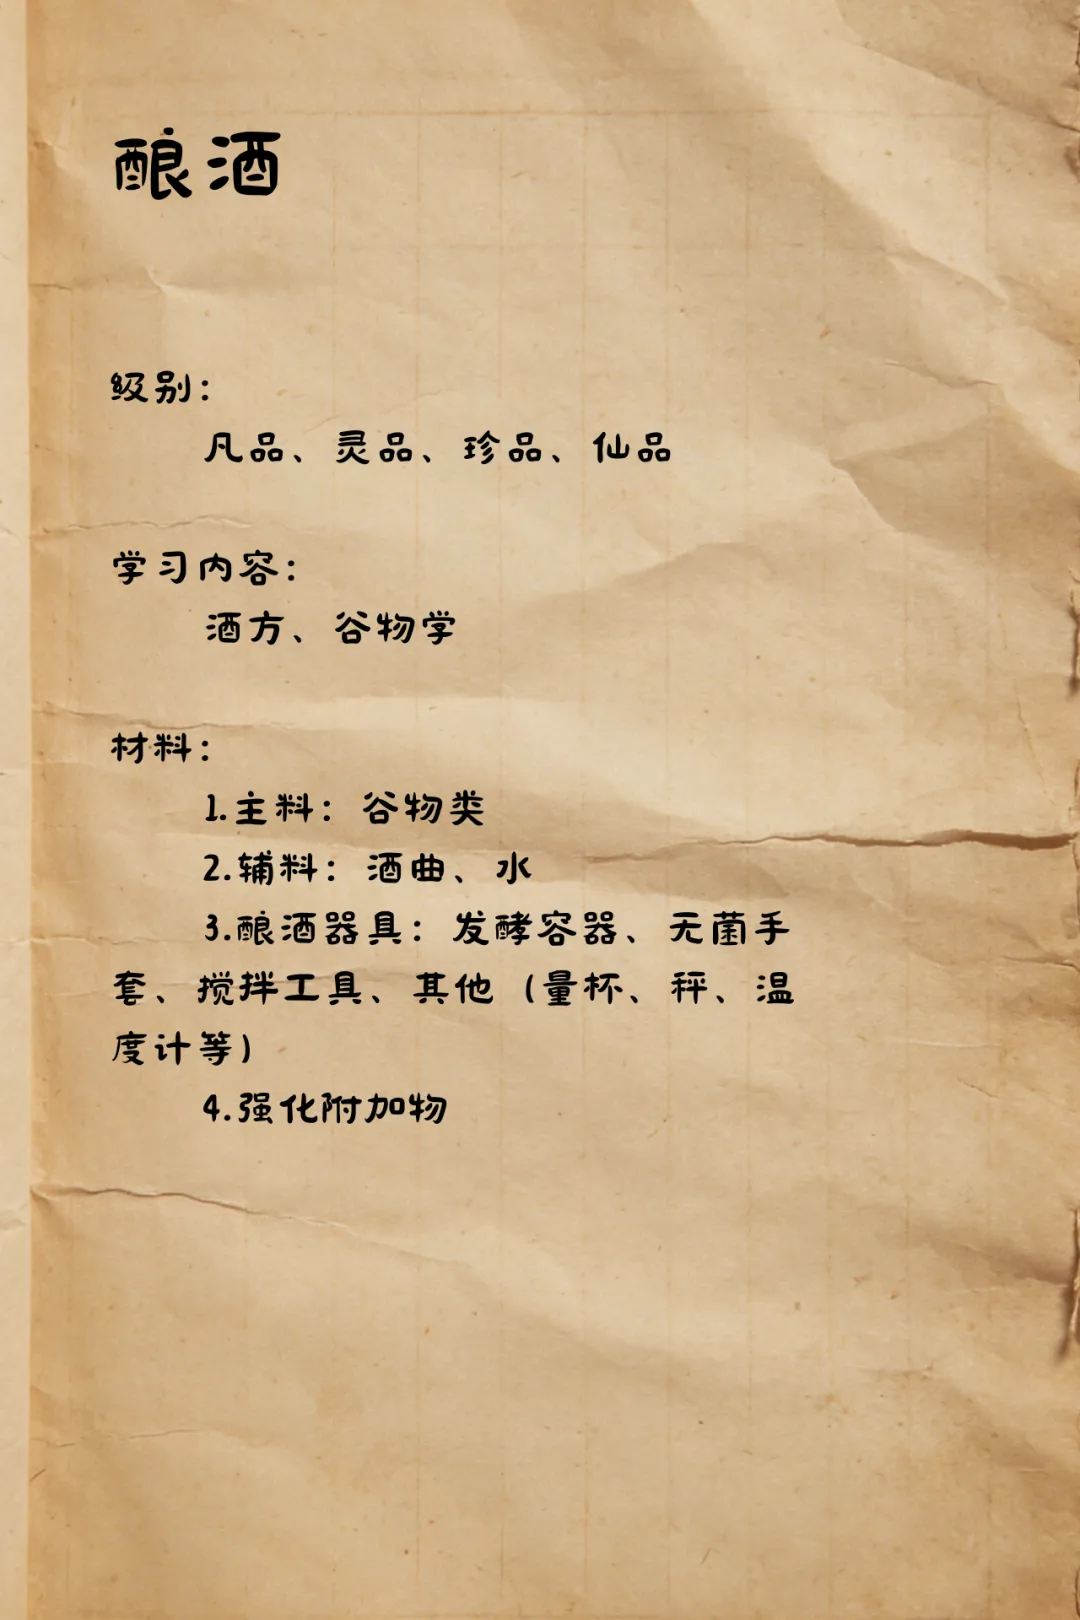 酿酒
级别：
凡品、灵品、珍品、仙品
学习内容：
酒方、谷物学
材料：
1.主料：谷物类
2.辅料：酒曲、水
3.酿酒器具：发酵容器、无菌手
套、搅拌工具、其他（量杯、秤、温
度计等）
4.强化附加物